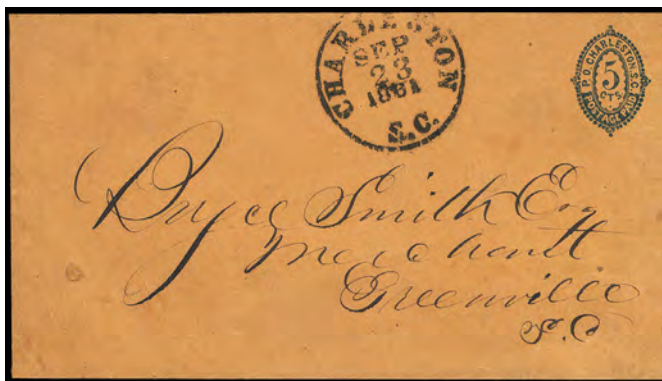 CHARLESTON
SEP
23
1861
S.C.
P.O. CHARLESTON, S.C.
5
CTS
POSTAGE PAID
Smith Esq
Merchant
Greenville
S.C